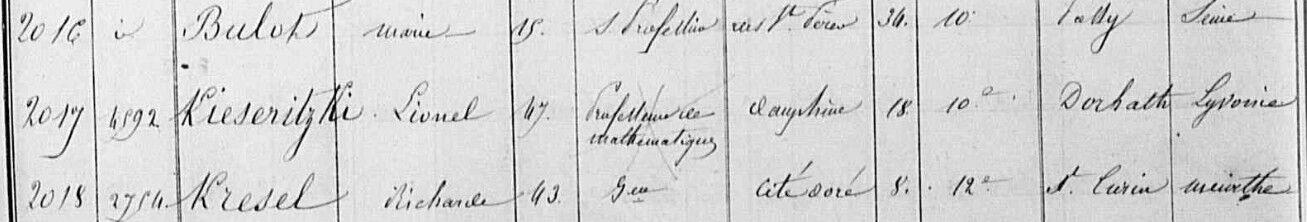 2016 Bulot marie 15. s. Profession des Sts Pères 34. 10e Passy Seine
2017 4592 Kieseritzki Lionel 47. Professeur de mathematiques Dauphine 18. 10e Dorhath Lyvonie
2018 2754. Kresel Richard 43. Gen cité doré 8. 12e St. Quirin meurthe